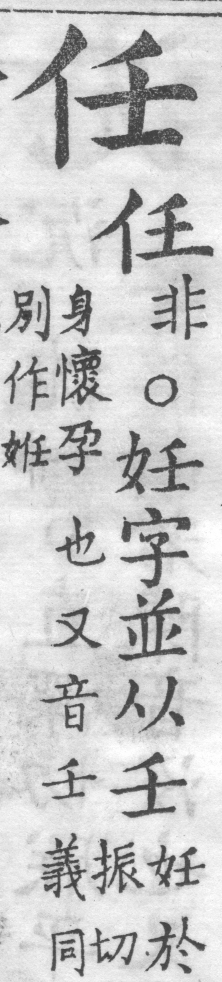 任
任非○妊字並从壬
妊於
振切
身懷孕也又音壬義同
別作姙